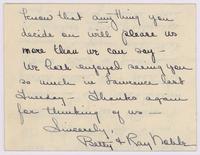 know that anything you
decide on will please us
more than we can say -
We both enjoyed seeing you
so much in Lawrence last
Tuesday - Thanks again
for thinking of us -
Sincerely,
Betty & Ray Noble